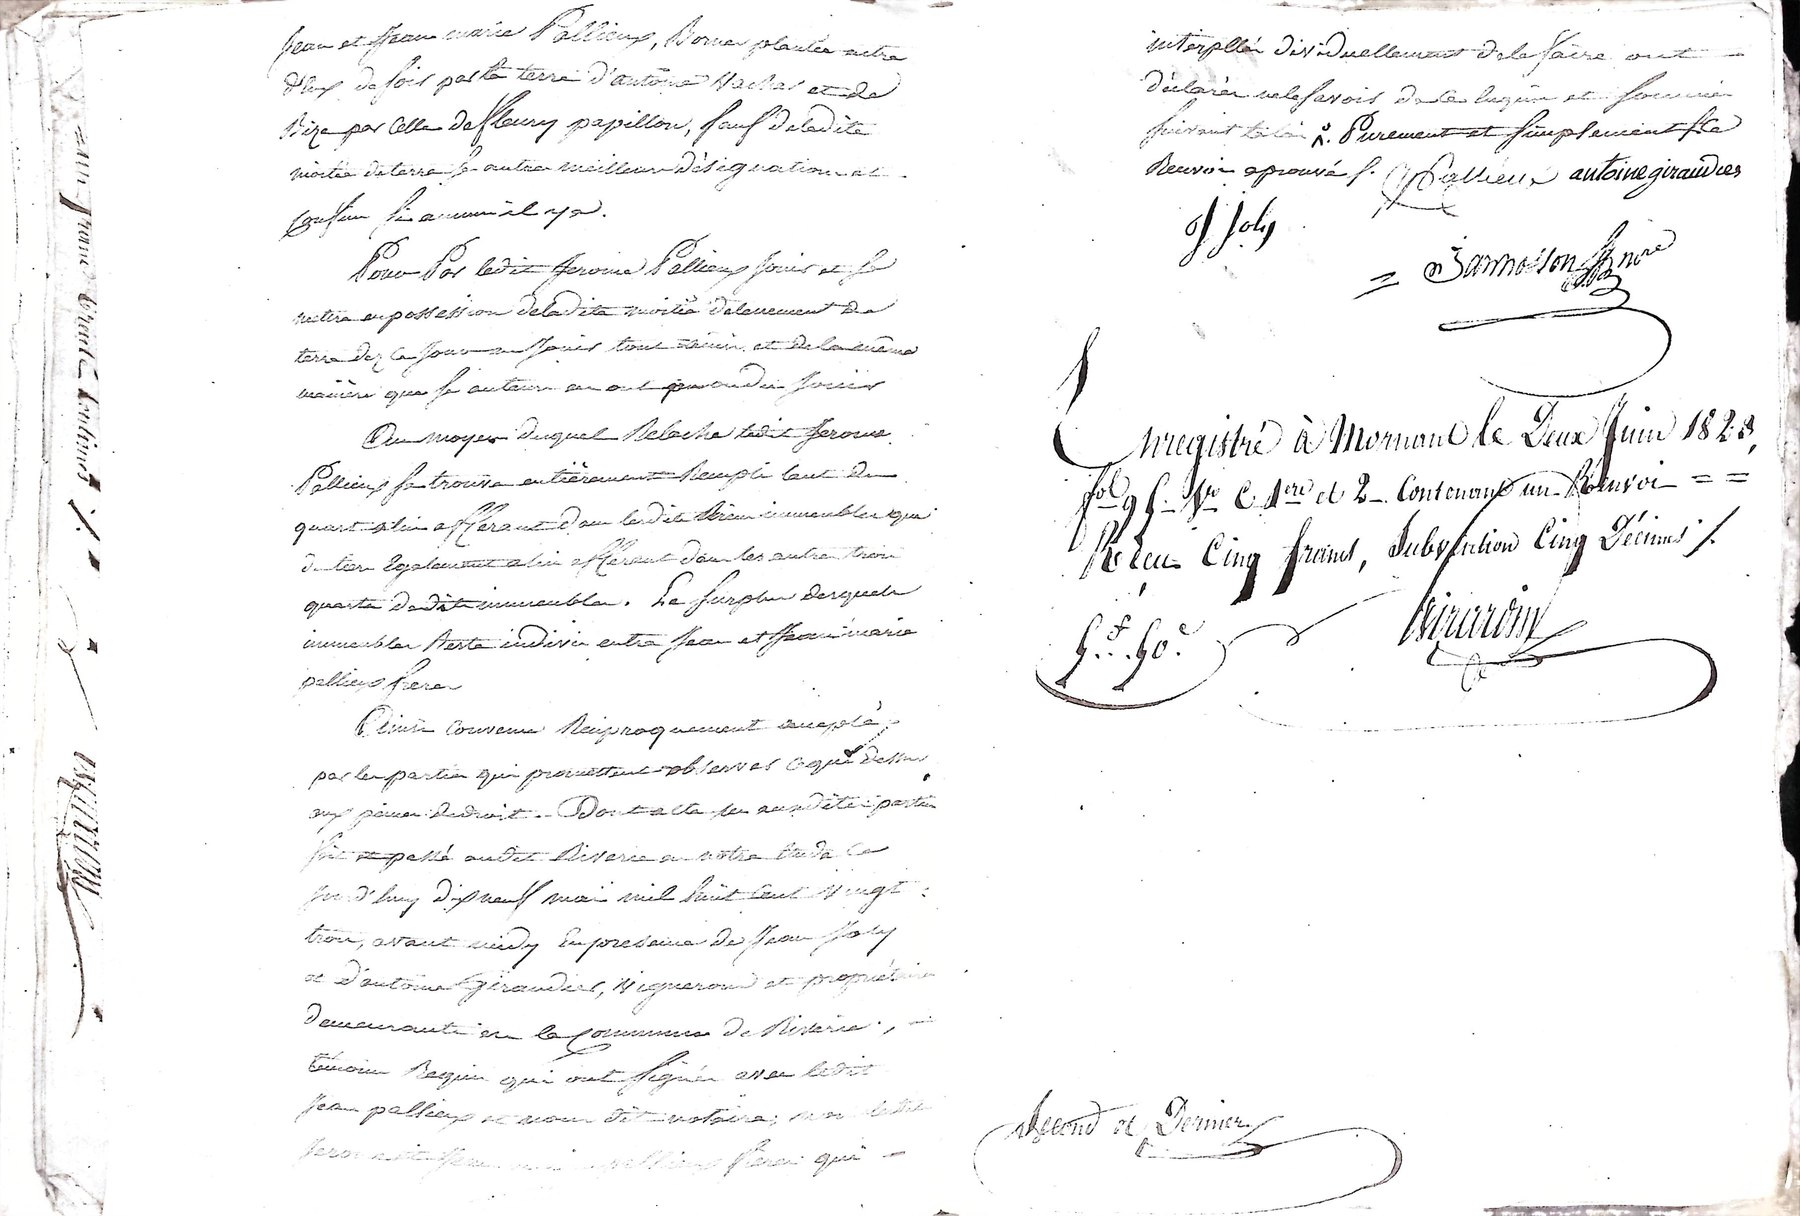 Jean et Jean marie Pallieux, Borne plantée entre
deux de soir par la terre d'antoine Vachar et de
Bize par celle de fleury papillon, sauf deladite
moitié de terre se autre meilleur désignation et
confin si aucun il y a.
Pour Par ledit Jerome Pallieux Jouir et se
mettre en possession deladite moitié detenement de
terre dez ce Jour en Jouir tout ainsi et de la même
manière que se auteurs en ont pu ou du Jouir
Au moyen duquel Relache ledit Jerome
Pallieux se trouve entièrement Rempli tant du
quart a lui afférant dans lesdits Bien immeubles que
du tier Egalement a lui afférant dans les autre trois
quarts desdits immeubles. Le surplus desquels
immeubles Reste indivis entre Jean et Jean marie
pallieux frères
Ainsi convenu Réciproquement accepté
par les parties qui promettent observer ce que dessus
aux peines de droit. Dont acte aux susdites parties
fait et passé audit Riverie en notre étude ce
jourd'huy dixneuf mai mil huit cent vingt
trois, avant midy En présence de Jean Joly
et d'antoine Giraudier, Vigneron et propriétaire
demeurants en la Commune de Riverie,
témoins Requis qui ont signés avec ledit
Jean pallieux et nous dit notaire; non lesdits
Jerome et Jean marie pallieux frères qui
interpellés dividuellement de le faire ont
déclarés ne le savoir de ce enquis et sommés
suivant la loi. Purement et simplement Le
Renvoi aprouvé J. Pallieux antoine giraudier
J Joly
Jamosson nore
Enregistré à Mornant le Deux Juin 1823,
fol 95 Vo C 1ere et 2 Contenant un Renvoi
Reçu Cinq francs, Subvention Cinq Décimes
5f.50c.
Second et Dernier